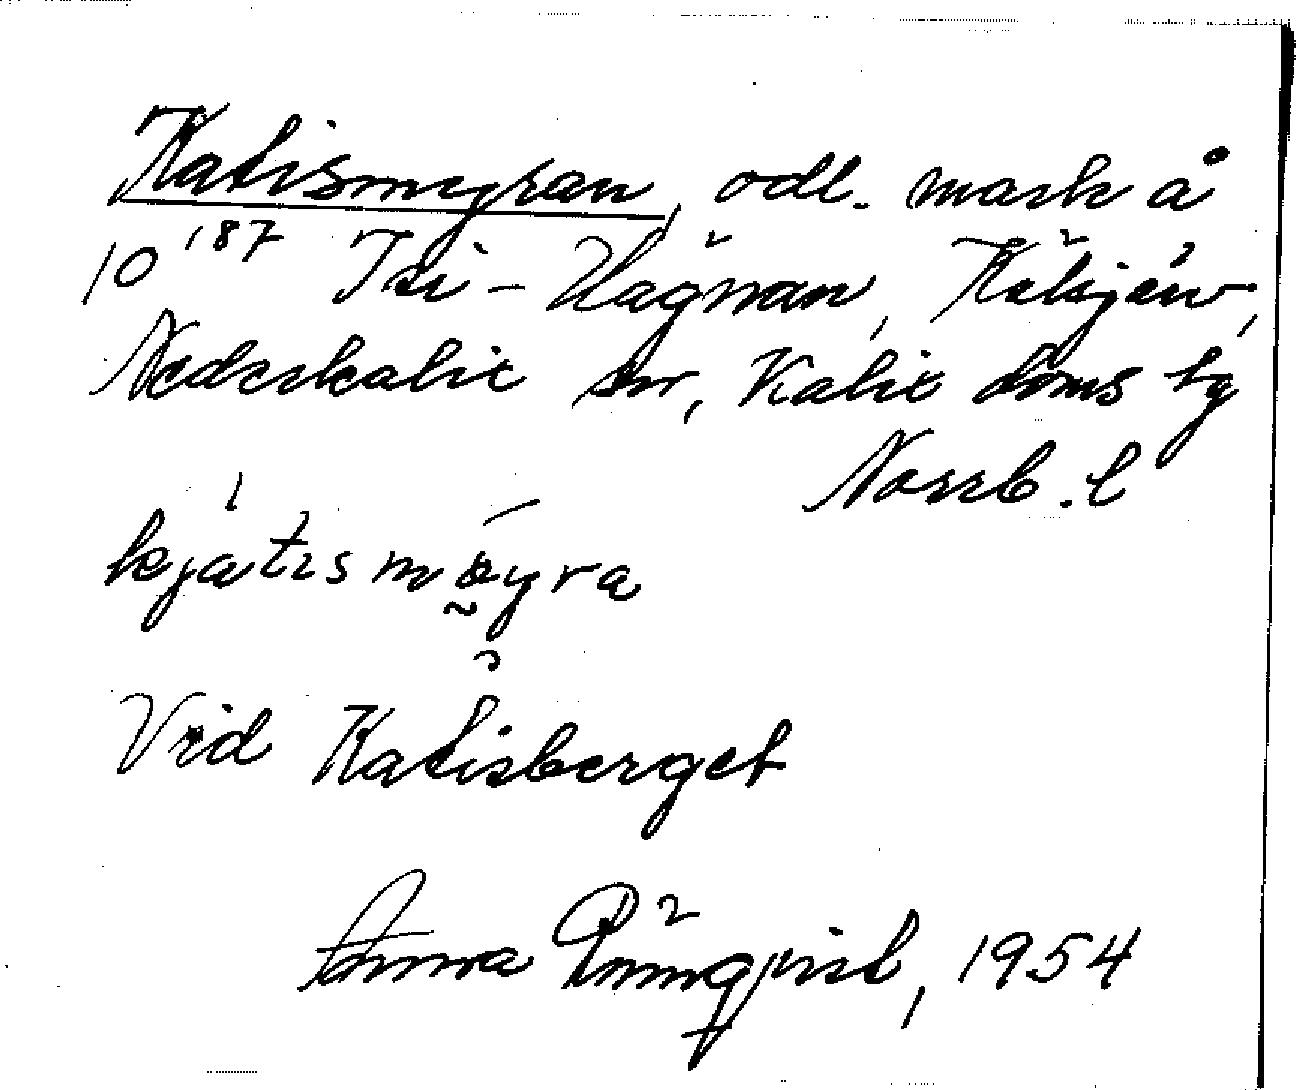 Katismyran, odl. mark å
10 187 Tri-Hagnan, Kälsjärv,
Nederkalix sn, Kalix doms tg
Norrb. l
kjatısmøyra
Vid Katisberget
Anna Lönnqvist, 1954